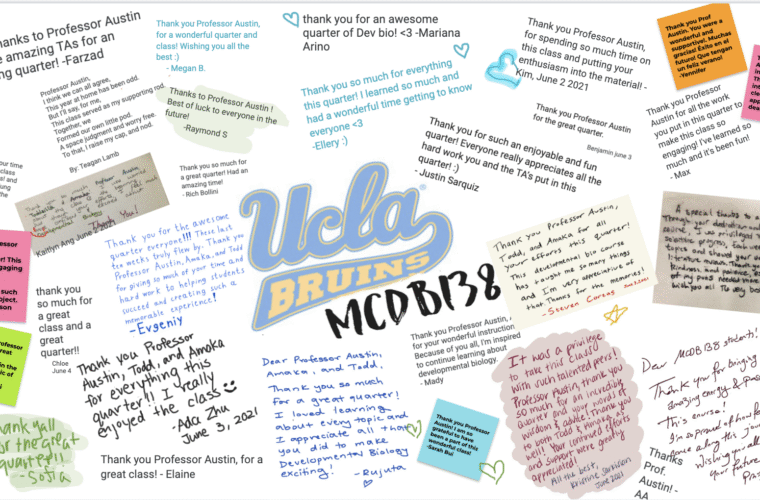 hanks to Professor Austin
e amazing TAs for an
ng quarter! -Farzad
Professor Austin,
I think we can all agree,
This year at home has been odd.
But I'll say, for me,
This class served as my supporting rod.
Together, we
Formed our own little pod.
A space judgment and worry free.
To that, I raise my cap, and nod.
By: Teagan Lamb
Thank you Professor Austin,
for a wonderful quarter and
class! Wishing you all the
best :)
- Megan B.
Thanks to Professor Austin !
Best of luck to everyone in the
future!
-Raymond S
Thank you so much for
a great quarter! Had an
amazing time!
- Rich Bollini
thank you for an awesome
quarter of Dev bio! <3 -Mariana
Arino
Thank you so much for everything
this quarter! I learned so much and
had a wonderful time getting to know
everyone <3
-Ellery :)
Thank you Professor Austin,
for spending so much time on
this class and putting your
enthusiasm into the material! -
Kim, June 2 2021
Thank you Professor Austin
for the great quarter.
Benjamin june 3
Thank you for such an enjoyable and fun
quarter! Everyone really appreciates all the
hard work you and the TA's put in this
quarter! :)
- Justin Sarquiz
Thank you Prof
Austin. You were a
wonderful and
supportive!. Muchas
gracias! Exito en el
futuro! Que tengan
un feliz verano!
-Yennifer
Thank you Professor
Austin for all the work
you put in this quarter to
make this class so
engaging! I've learned so
much and it's been fun!
- Max
Thank You!
Kaitlyn Ang June 2 2021
Thank you for the awesome
quarter everyone!!! These last
ten weeks truly flew by. Thank you
Professor Austin, Amaka, and Todd
for giving so much of your time and
hard work to helping students
succeed and creating such a
memorable experience!
- Evgeniy
UCLA
BRUINS
MCDB138
Thank you Professor Austin,
Todd, and Amaka for all
your efforts this quarter!
This developmental bio course
has taught me so many things
and I'm very appreciative of
that. Thanks for the memories!
- Steven Cortas
A special thanks to
thank you
so much for
a great
class and a
great
quarter!!
Chloe
June 4
Thank you Professor
Austin, Todd, and Amaka
for everything this
quarter!! I really
enjoyed the class
-Ada Zhu
June 3, 2021
Dear Professor Austin,
Amaka, and Todd,
Thank you so much
for a great quarter!
I loved learning
about every topic and
I appreciate all that
you did to make
Developmental Biology
exciting!
- Rujuta
Thank you Professor Austin,
for your wonderful instruction
Because of you all, I'm inspired
to continue learning about
developmental biology.
- Mady
Thank you Professor
Austin! I am so
grateful to have
been a part of this
wonderful class!
-Sarah Bui
It was a privilege
to take this class
with such talented peers!
Professor Austin, thank you
so much for an incredible
quarter and your words of
wisdom & advice! Thank you
to both Todd & Amaka as
well! Your continued efforts
and support were greatly
appreciated!
All the best,
June 2021
Dear MCDB 138 students!
Thank you for bringing
amazing energy &
this course!
Thanks
Prof.
Austin! -
AA
thank yall
for the great
quarter!!!
- Sofia
Thank you Professor Austin, for a
great class! - Elaine